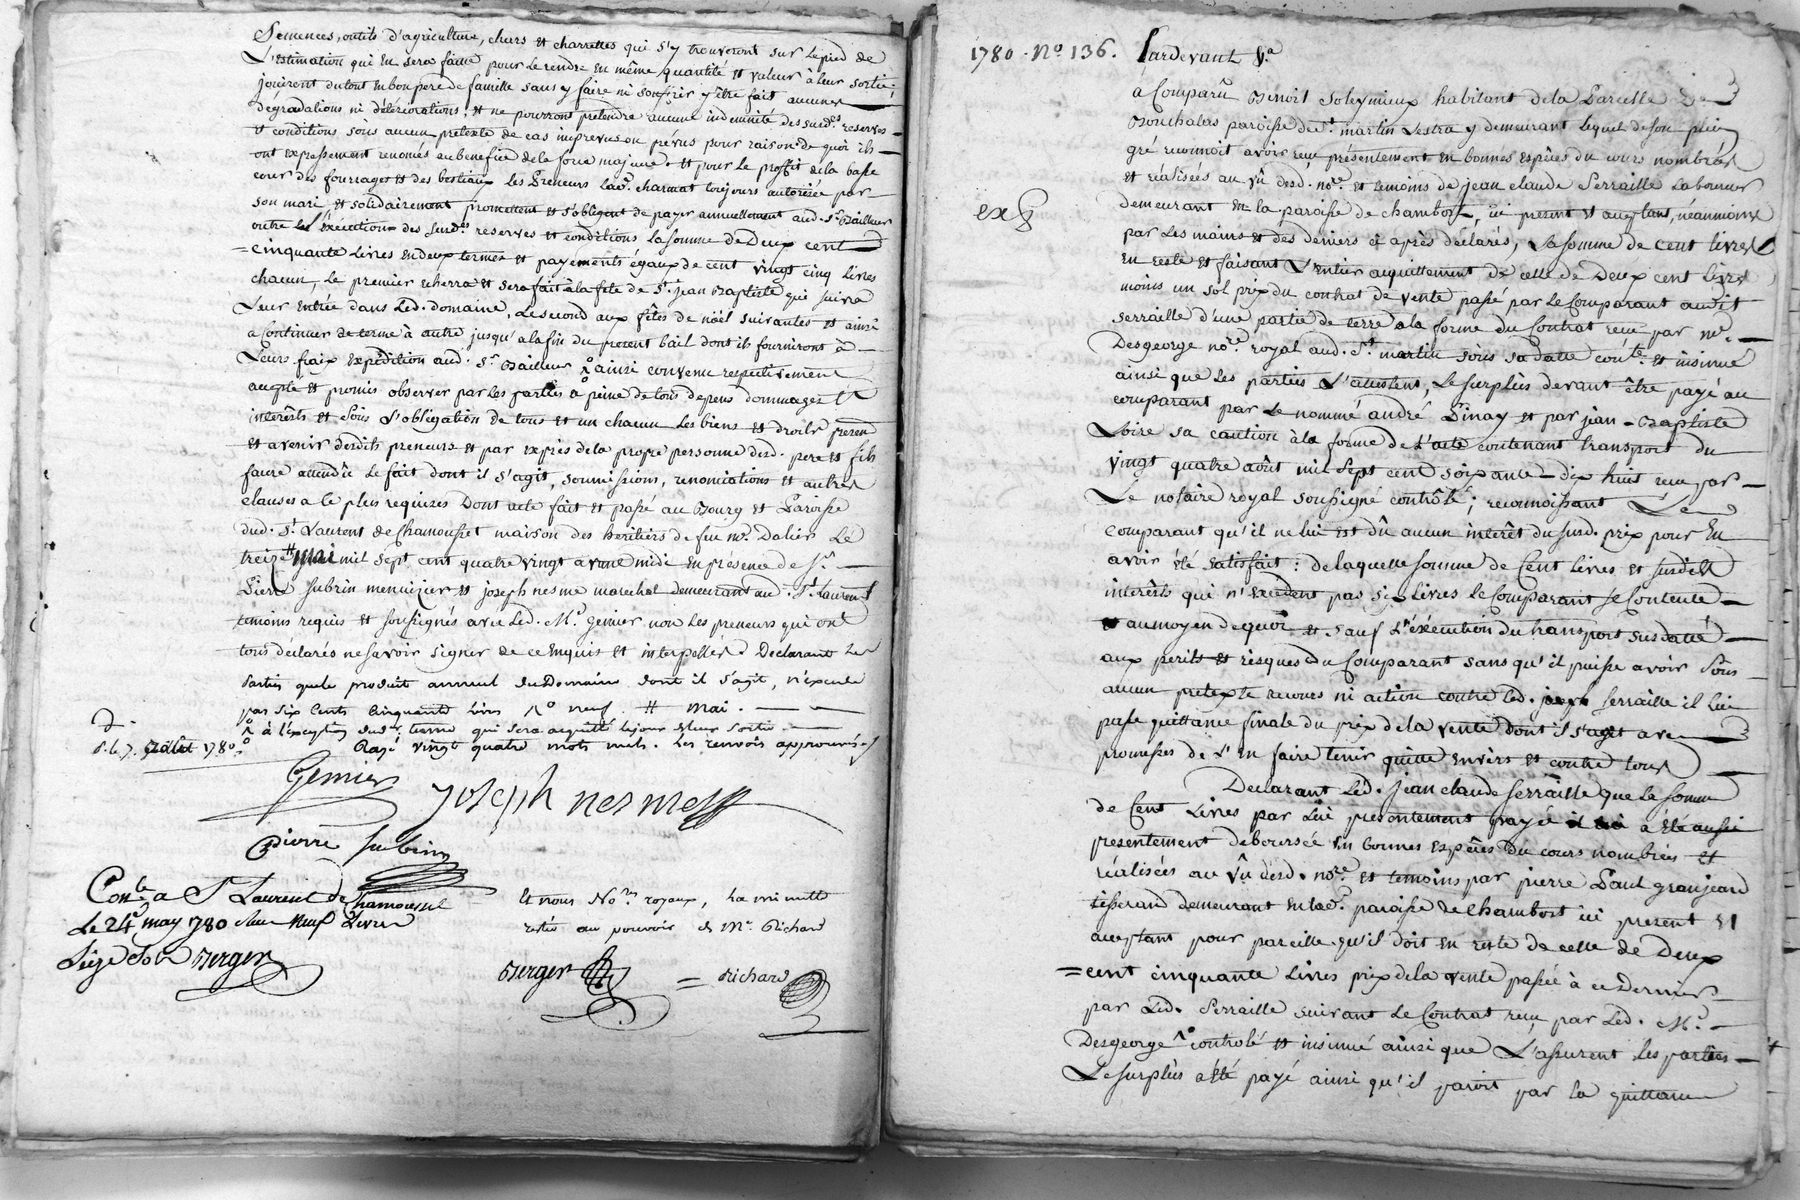 Semences, outils d'agriculture, chars et charrettes qui s'y trouveront sur le pied de
L'estimation qui en sera faitte pour le rendre en même quantité et valeur à leur sortie,
jouiront du tout en bon pere de famille sans y faire ni souffrir y être fait aucunes
dégradations ni déteriorations, et ne pourront prétendre aucune indemnité des susd.es reserves
et conditions sous aucun pretexte de cas imprévus ou prévus pour raison de quoi ils
ont expressement renoncés au benefice de la force majeure. et pour le proffit de la basse
cour des fourrages et des bestiaux Les Preneurs lad.e charmat toujours autorisée par
son mari et solidairement promettent et s'obligent de payer annuellement aud. S.r Bailleur
outre les éxécutions des susd.es reserves et conditions La somme de Deux cent
= cinquante Livres en deux termes et payements égaux de cent vingt cinq Livres
chacun, Le premier echerra et sera fait à la fete de S.t jean Baptiste qui suivra
Leur entrée dans Led. domaine, Le second aux fêtes de noël suivantes et ainsi
a Continuer de terme à autre jusqu'a la fin du present bail dont ils fourniront à
Leurs fraix expédition aud. S.r Bailleur ainsi convenu respectivement
accepté et promis observer par les parties à peine de tous depens dommages et
interêts et sous L'obligation de tous et un chacun Les biens et droits presents
et avenir desdits preneurs et par exprès de la propre personne desd. pere et fils
faure attendu Le fait dont il s'agit, soumissions, renonciations et autres
clauses a le plus requises Dont acte fait et passé au Bourg et Paroisse
dud. S.t Laurent de Chamousset maison des heritiers de feu M.e Dalier Le
treize mai mil sept cent quatre vingt avant midi en presence de S.r
Pierre Subrin menuizier et joseph nesme marechal demeurants aud. S.t Laurent
temoins requis et soussignés avec Led. M.e Genier non Les preneurs qui ont
tous déclarés ne savoir signer de ce enquis et interpellés Declarant Les
Parties que le produit annuel du Domaine dont il s'agit, n'excede
pas six Cents Cinquante Livres neuf # mai. —
à l'exception du terme qui sera acquitté le jour de leur sortie.
Rayé vingt quatre mots nuls. Les renvois approuvés
d.
d. l. 7. Juillet 1780.
Genier joseph nesme
pierre subrin
Con.lé a S.t Laurent de Chamousset
Le 24.e may 1780 Reçu Neuf Livres
Berger
Et nous No.res royaux, la minutte
restée au pouvoir de M.e Richard
Berger = Richard
1780. N.o 136. Pardevant &.a
a Comparu Benoit Soleymieux habitant de la Parcelle de
Bouchalas paroisse de S.t martin Lestra y demeurant Lequel de son plein
gré reconnoit avoir reçu présentement en bonnes espèces du cours nombrées
et réalisées au vû desd. no.re et temoins de jean claude Serraille Laboureur
exp
demeurant en la paroisse de chambost, ici present et acceptant, néanmoins
par Les mains et des deniers ci après déclarés, La somme de cent livres
en reste et faisant L'entier acquittement de celle de Deux cent Livres
moins un sol prix du contrat de vente passé par Le Comparant audit
serraille d'une partie de terre a la forme du Contrat reçu par M.e
Desgeorge no.re royal aud. S.t martin sous sa datte con.lé et insinué
ainsi que Les parties L'attestent, Le surplus devant être payé au
comparant par Le nommé andré Pinay et par jean-Baptiste
Loire sa caution à la forme de L'acte contenant transport du
vingt quatre août mil sept cent soixante-dix huit reçu par
Le notaire royal soussigné contrôlé; reconnoissant Le
comparant qu'il ne lui est dû aucun interêt du susd. prix pour en
avoir été satisfait: de laquelle somme de Cent Livres et susdits
interêts qui n'excedent pas six Livres Le Comparant se Contente
et au moyen de quoi et sauf L'éxécution du transport sus datté
aux perils et risques du Comparant sans qu'il puisse avoir sous
aucun pretexte recours ni action contre Led. serraille il Lui
passe quittance finale du prix de la vente dont il s'agit avec
promesses de L'en faire tenir quitte envers et contre tous
Declarant Led. jean claude serraille que La somme
de Cent Livres par Lui presentement payée a été aussi
presentement deboursée en bonnes espèces du cours nombrées et
réalisées au vû desd. no.re et temoins par pierre Paul granjeard
tisserand demeurant en lad.e paroisse de Chambost ici present et
acceptant pour pareille qu'il doit en reste de celle de Deux
= cent cinquante Livres prix de la vente passée à ce dernier
par Led. Serraille suivant Le Contrat reçu par Led. M.e
Desgeorge contrôlé et insinué ainsi que L'assurent les parties
Le surplus a été payé ainsi qu'il paroit par la quittance